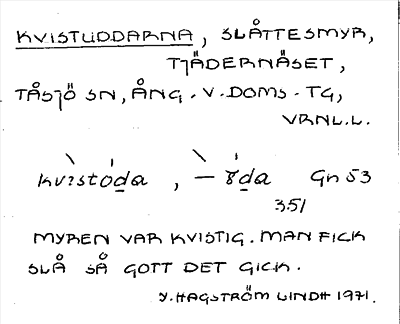 KVISTUDDARNA, SLÅTTESMYR,
TJÄDERNÄSET,
TÅSJÖ SN, ÅNG. V. DOMS. TG,
VRNL.L.
kvistoda, – 8da Gn 53
351
MYREN VAR KVISTIG. MAN FICK
SLÅ SÅ GOTT DET GICK.
Y. HAGSTRÖM LINDH 1971.